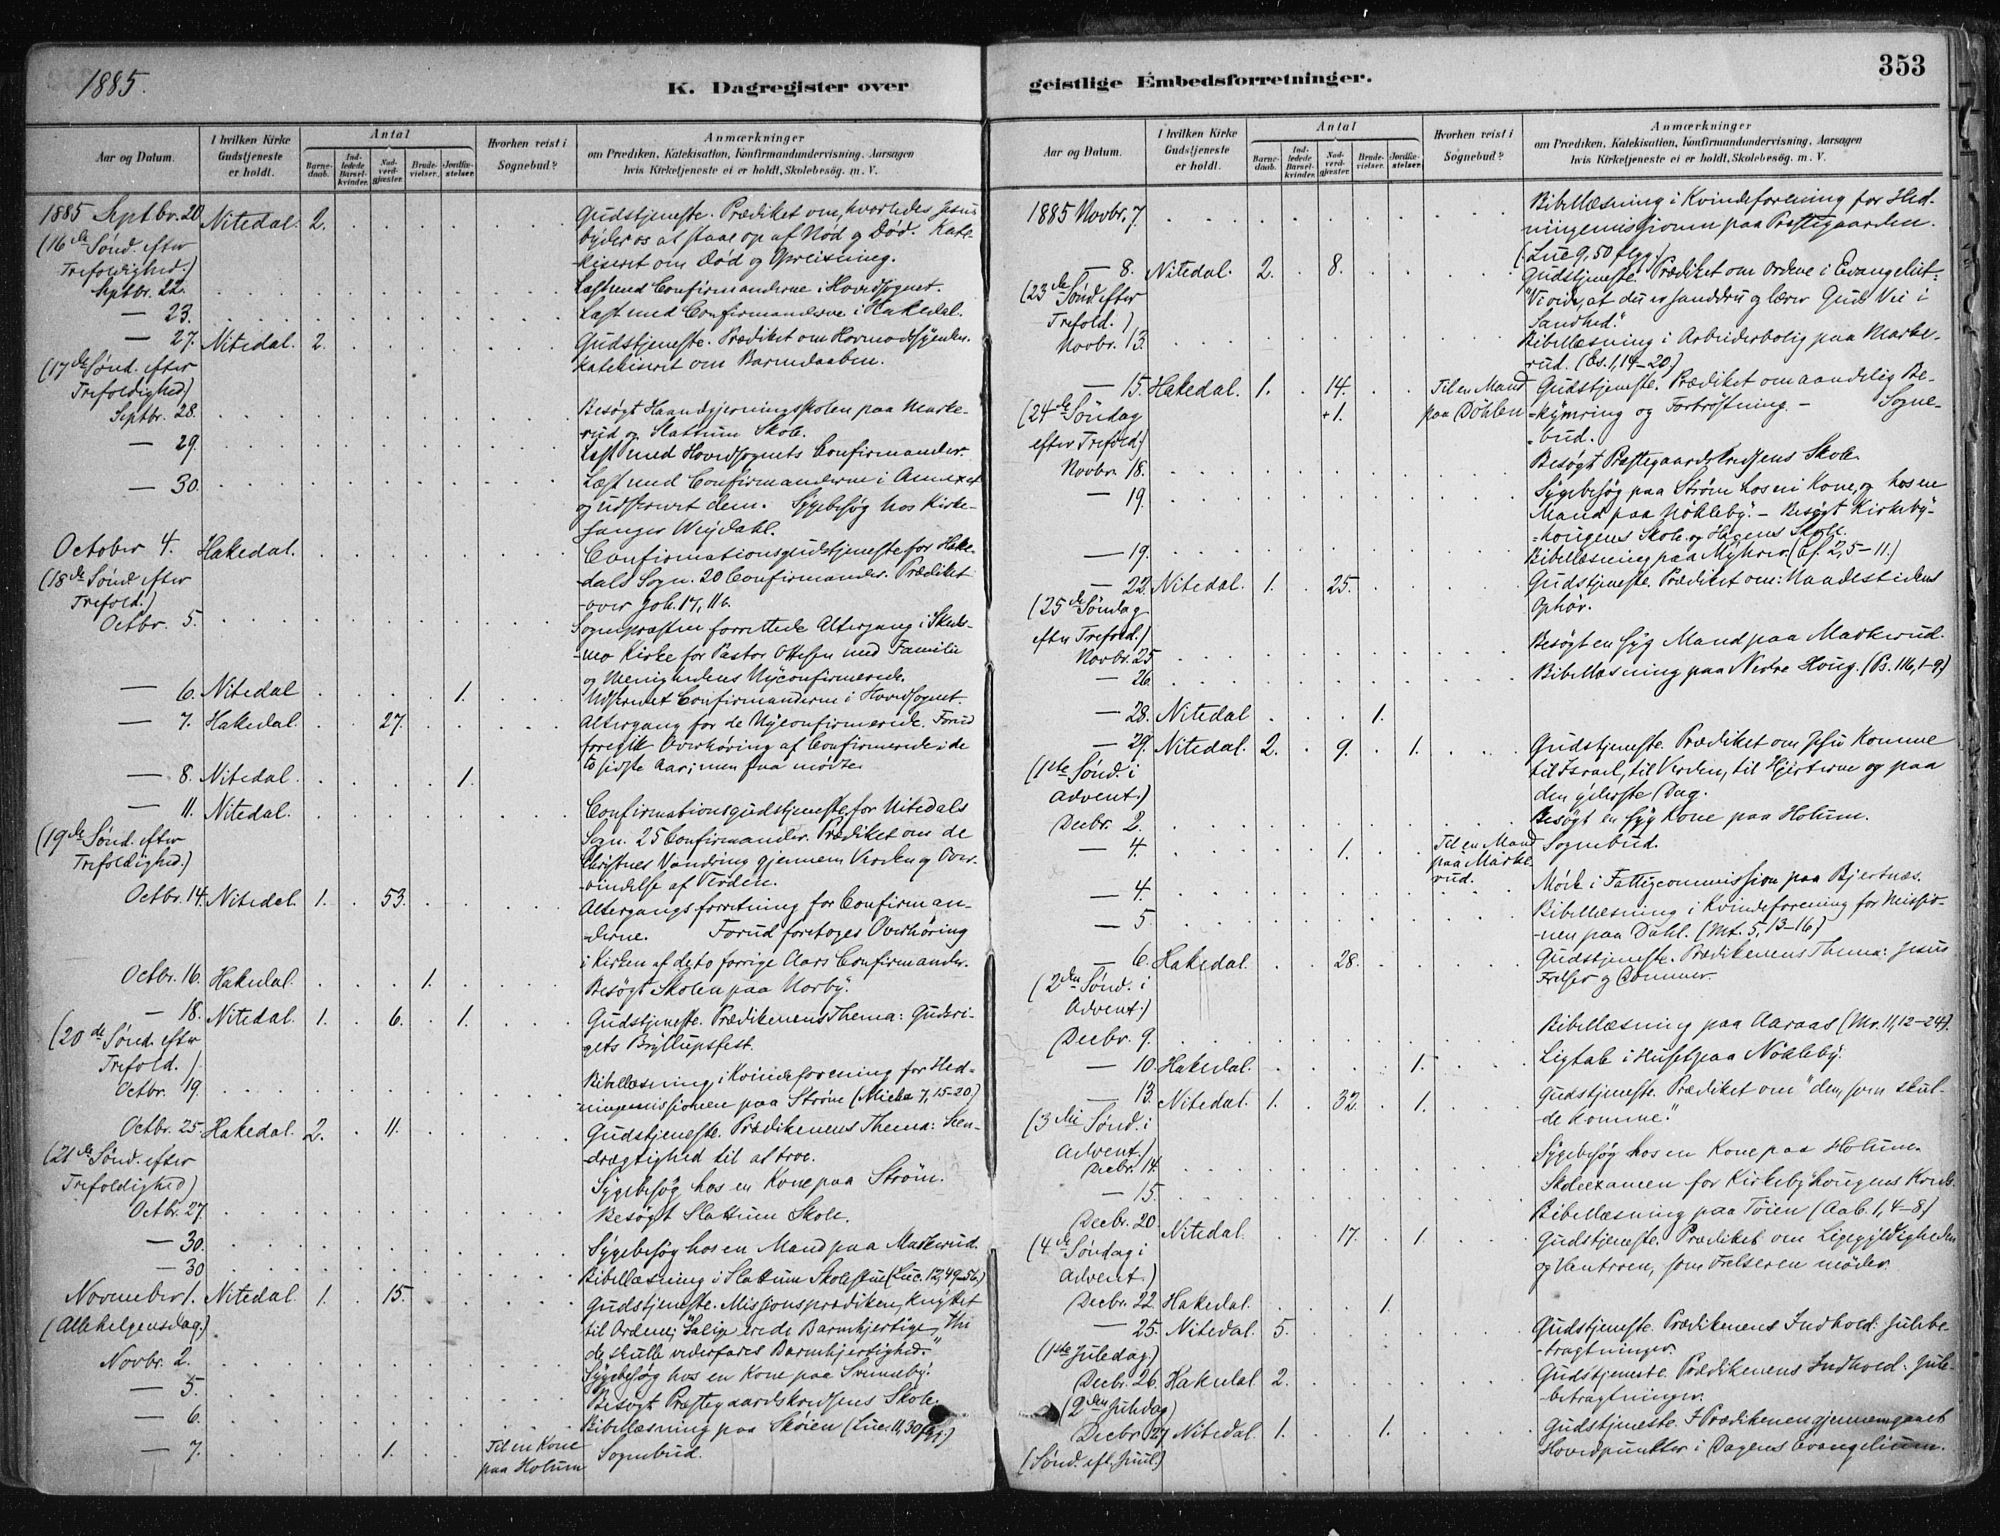 1885.
K. Dagregister over
Aar og Datum.
I hvilken Kirke Gudstjeneste er holdt.
Antal
Barnedaab.
Indledede Barselkvinder.
Nadverdgjæster.
Brudevielser.
Jordfæstelser.
Hvorhen reist i Sognebud?
Anmærkninger
om Prædiken, Katekisation, Konfirmandundervisning, Aarsagen
hvis Kirketjeneste ei er holdt, Skolebesøg. m. V.
1885 Septbr. 20 Nitedal. 2. Gudstjeneste. Prædiket om, hvorledes Jesus
(16de Sønd. efter byder os at staae op af Nød og Død. Kate-
Trefoldighed.) kiseret om Død og Opreisning.
Septbr. 22. Læst med Confirmanderne i Hovedsognet.
— 23. Læst med Confirmanderne i Hakedal.
— 27. Nitedal. 2. Gudstjeneste. Prædiket om Hovmodssynden.
(17de Sønd. efter Katekiseret om Barnedaaben.
Trefoldighed)
Septbr. 28. Besøgt Haandgjerningsskolen paa Marke-
rud og Slattum Skole.
— 29. Læst med Hovedsognets Confirmander.
— 30. Læst med Confirmanderne i Annexet
og udskrevet dem. Sygebesøg hos Kirke-
sanger Weydahl.
October 4. Hakedal. Confirmationsgudstjeneste for Hake-
(18de Sønd. efter dals Sogn. 20 Confirmander. Prædiket
Trefold.) over Joh. 17, 11b.
Octbr. 5. Sognepræsten forrettede Altergang i Skeds-
mo Kirke for Pastor Ottesen med Familie
og Menighedens Nyconfirmerede.
— 6. Nitedal 1. Udskrevet Confirmanderne i Hovedsognet.
— 7. Hakedal. 27. Altergang for de Nyconfirmerede. Forud
foregik Overhøring af Confirmerede i de
to sidste Aar; men faa mødte.
— 8. Nitedal. 1.
— 11. Nitedal. Confirmationsgudstjeneste for Nitedals
(19de Sønd. efter Sogn. 25 Confirmander. Prædiket om de
Trefoldighed.) Christnes Vandring gjennem Verden og Over-
vindelse af Verden.
Octbr. 14. Nitedal. 1. 53. Altergangsforretning for Confirman-
derne. Forud foretoges Overhøring
i Kirken af de to forrige Aars Confirmander.
Octbr. 16. Hakedal. 1. Besøgt Skolen paa Norby.
— 18. Nitedal. 1. 6. 1. Gudstjeneste. Prædikenens Thema: Guderi-
(20de Sønd. efter gets Bryllupsfest.
Trefold.)
Octbr. 19. Bibellæsning i Kvindeforening for Hed-
ningemissionen paa Strøm (Micha 7, 15-20)
Octbr. 25 Hakedal. 2. 11. Gudstjeneste. Prædikenens Thema: Sen-
(21de Sønd. efter drægtighed til at troe.
Trefoldighed) Sygebesøg hos en Kone paa Strøm.
Octbr. 27. Besøgt Slattum Skole.
— 30. Sygebesøg hos en Mand paa Markerud.
— 30 Bibellæsning i Slattum Skolestue (Luc. 12, 49-56)
November 1. Nitedal. 1. 15. Gudstjeneste. Missionsprædiken, knyttet
(Allehelgensdag.) til Ordene: "Salige ere de Barmhjertige, Thi
de skulle vederfares Barmhjertighed."
Novbr. 2. Sygebesøg hos en Kone paa Sunneby.
— 5. Besøgt Præstegaardskredsens Skole.
— 6. Bibellæsning paa Skøien (Luc. 11, 30 flgg.)
— 7. 1. Til en Kone paa Holum Sognebud.
geistlige Embedsforretninger.
353
Aar og Datum.
I hvilken Kirke Gudstjeneste er holdt.
Antal
Barnedaab.
Indledede Barselkvinder.
Nadverdgjæster.
Brudevielser.
Jordfæstelser.
Hvorhen reist i Sognebud?
Anmærkninger
om Prædiken, Katekisation, Konfirmandundervisning, Aarsagen
hvis Kirketjeneste ei er holdt, Skolebesøg. m. V.
1885 Novbr. 7. Bibellæsning i Kvindeforening for Hed-
ningemissionen paa Præstegaarden.
(Luc 9, 50 flgg.)
— 8. Nitedal. 2. 8. Gudstjeneste. Prædiket om Ordene i Evangeliet:
(23de Sønd efter "Vi vide, at du er sanddru og lærer Guds Vei i
Trefold.) Sandhed."
Novbr. 13. Bibellæsning i Arbeiderbolig paa Marke-
rud. (Es. 1, 14-20)
— 15. Hakedal. 1. 14. Til en Mand Gudstjeneste. Prædiket om aandelig Be-
(24de Søndag +1. paa Døhlen kymring og Fortrøstning. — Sogne-
efter Trefold.) bud.
Novbr. 18. Besøgt Præstegaardskredsens Skole.
— 19. Sygebesøg paa Strøm hos en Kone, og hos en
Mand paa Nøkleby. — Besøgt Kirkeby-
hougens Skole og Hagens Skole.
— 19. Bibellæsning paa Myhrer. (Ef. 2, 5-11.)
— 22. Nitedal. 1. 25. Gudstjeneste. Prædiket om: Naadestidens
(25de Søndag Ophør.
efter Trefold.)
Novbr. 25 Besøgt en syg Mand paa Markerud.
— 26. Bibellæsning paa Nedre Houg. (Ps. 116, 1-9.)
— 28. Nitedal 1.
— 29. Nitedal. 2. 9. 1. Gudstjeneste. Prædiket om Jesu Komme
(1ste Sønd. i til Israel, til Verden, til Hjerterne og paa
Advent.) den yderste Dag.
Decbr. 2. Besøgt en syg Kone paa Holum.
— 4. 1. Til en Mand paa Markerud. Sognebud.
— 4. Møde i Fattigcommission paa Bjertnæs.
— 5. Bibellæsning i Kvindeforening for Missio-
nen paa Dahl. (Mt. 5, 13-16)
— 6. Hakedal. 28. Gudstjeneste. Prædikenens Thema: Jesus
(2den Sønd. i Frelser og Dommer.
Advent.)
Decbr. 9. Bibellæsning paa Aaraas (Mr. 11, 12-24).
— 10. Hakedal 1. Ligtale i Huset paa Nøkleby.
— 13. Nitedal. 1. 32. 1. Gudstjeneste. Prædiket om "den, som skul-
(3die Sønd. i de komme."
Advent.)
Decbr. 14. Sygebesøg hos en Kone paa Holum.
— 15. Skoleexamen for Kirkebyhougens Kreds.
Decbr. 20 Nitedal. 17. 1. Bibellæsning paa Tøien (Aab. 1, 4-8.)
(4de Søndag i Gudstjeneste. Prædiket om Ligegyldigheden
Advent.) og Vantroen, som Frelseren møder.
Decbr. 22. Hakedal. 1.
— 25. Nitedal. 5. Gudstjeneste. Prædikenens Indhold: Julebe-
(1ste Juledag) tragtninger.
Decbr. 26. Hakedal 2. Gudstjeneste. Prædikenens Indhold: Jule-
(2den Juledag) betragtninger.
Decbr. 27 Nitedal. 1. 1. Gudstjeneste. I Prædikenen gjennemgaaet
(Sønd. eft. Juul) Hovedpunkter i Dagens Evangelium.